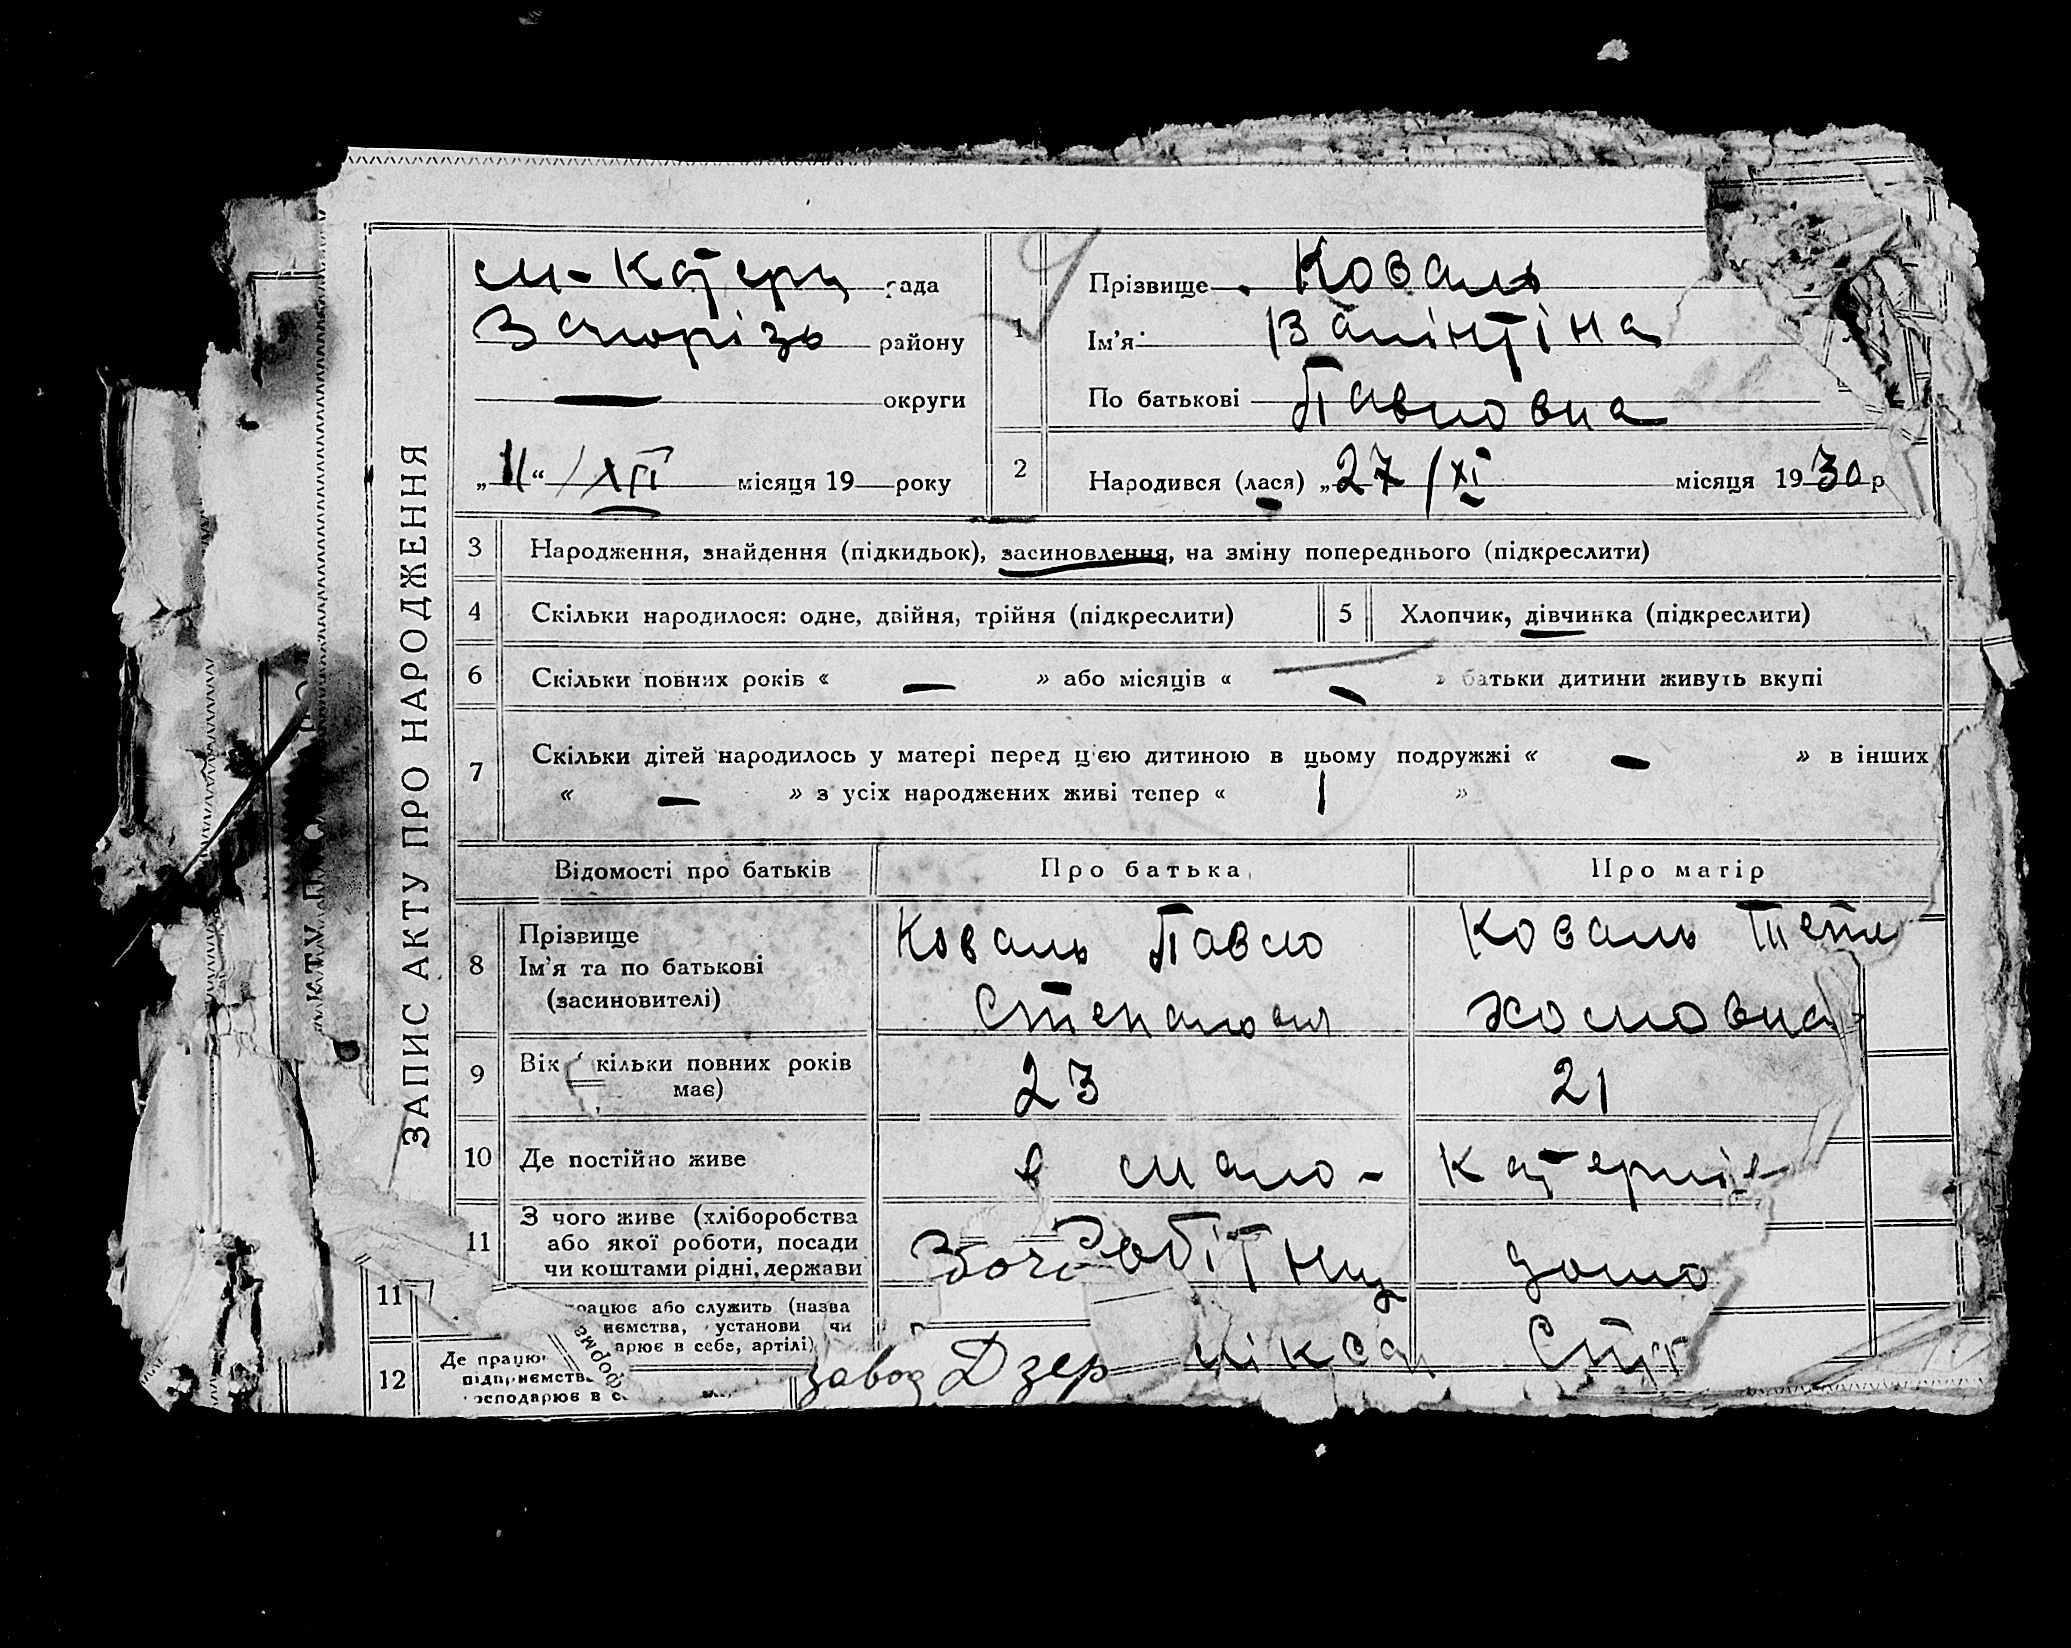 ЗАПИС АКТУ ПРО НАРОДЖЕННЯ
м-Катерц рада
Запорізь району
— округи
„11“ /XII місяця 19 — року
1
Прізвище Коваль
Ім'я Валінтіна
По батькові Павловна
2 Народився (лася) „27 /XI місяця 1930 р
3 Народження, знайдення (підкидьок), засиновлення, на зміну попереднього (підкреслити)
4 Скільки народилося: одне, двійня, трійня (підкреслити)
5 Хлопчик, дівчинка (підкреслити)
6 Скільки повних років « — » або місяців « — » батьки дитини живуть вкупі
7 Скільки дітей народилось у матері перед ц'єю дитиною в цьому подружжі « — » в інших
« — » з усіх народжених живі тепер « 1 »
Відомості про батьків Про батька Про матір
8 Прізвище
Ім'я та по батькові
(засиновителі)
Коваль Павло
Коваль Тетя
Хомовна
9 Вік кільки повних років
має)
23 21
10 Де постійно живе
в мало- Катерів
11 З чого живе (хліборобства
або якої роботи, посади
чи коштами рідні, держави
Робітнц дома
11
рацює або служить (назва
иємства, установи чи
арює в себе, артілі)
12 Де працю
підприємств
осподарює в с
форма
завод Дзер
лікса
КТУ